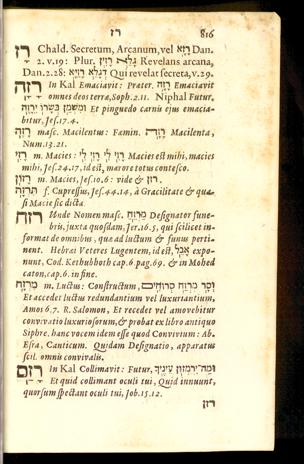 רז 816
רָז Chald. Secretum, Arcanum, vel רָזָא Dan.
2. v. 19: Plur. גָּלֵא רָזִין Revelans arcana,
Dan. 2. 28: וְגָלֵא רָזַיָּא Qui revelat secreta, v. 29.
רזה In Kal Emaciavit: Præter. רָזָה Emaciavit
omnes deos terræ, Soph. 2. 11. Niphal Futur.
וּמִשְׁמַן בְּשָׂרוֹ יֵרָזֶה Et pinguedo carnis ejus emacia-
bitur, Jes. 17. 4.
רָזֶה masc. Macilentus: Fæmin. רָזָה Macilenta,
Num. 13. 21.
רָזִי m. Macies: רָזִי לִי רָזִי לִי Macies est mihi, macies
mihi, Jes. 24. 17, id est, marore totus contesco.
רָזוֹן m. Macies, Jes. 10. 6: vide &
תִּרְזָה f. Cupressus, Jes. 44. 14, à Gracilitate & qua-
si Macie sic dicta.
רזח Unde Nomen masc. מַרְזֵחַ Designator fune-
bris, juxta quosdam, Jer. 16. 5, qui scilicet in-
format de omnibus, quæ ad luctum & funus perti-
nent. Hebræi Veteres Lugentem, id est, אָבֵל expo-
nunt, Cod. Kethubhoth cap. 6. pag. 69. & in Mohed
caton, cap. 6. in fine.
מַרְזֵחַ m. Luctus: Constructum, וְסָר מִרְזַח סְרוּחִים
Et accedet luctus redundantium vel luxuriantium,
Amos 6. 7. R. Salomon, Et recedet vel amovebitur
convivatio luxuriosorum, & probat ex libro antiquo
Siphre, hanc vocem idem esse quod Convivium: Ab.
Esra, Canticum. Quidam Designatio, apparatus
scil. omnis convivalis.
רזם In Kal Collimavit: Futur. וּמַה־יִּרְזְמוּן עֵינֶיךָ
Et quid collimant oculi tui, Quid innuunt,
quorsum spectant oculi tui, Job. 15. 12.
רזן